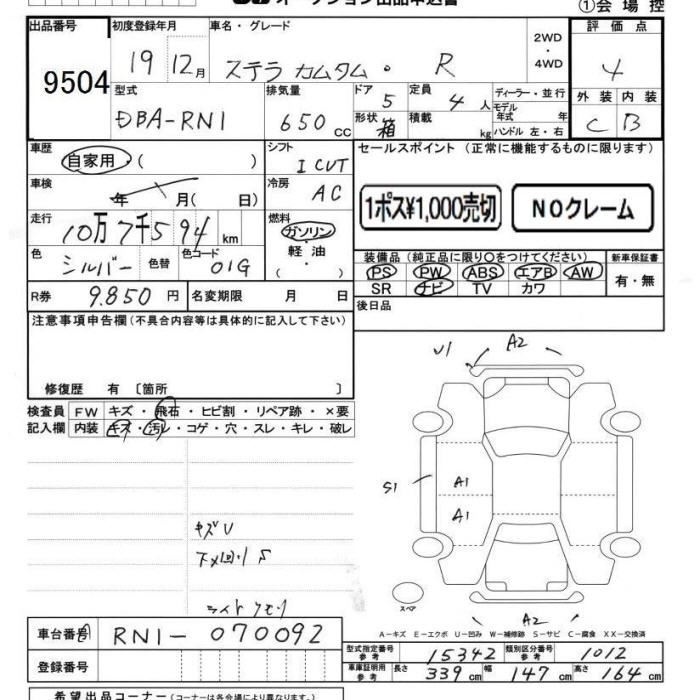 オークション出品申込書
①会場控
出品番号 初度登録年月 車名・グレード 2WD・4WD 評価点
9504 19 12月 ステラ カムタム・ R 4
型式 排気量 ドア 5 定員 4人 ディーラー・並行 外装 内装
DBA-RN1 650cc 形状 箱 積載 kg モデル年式 年 C B
ハンドル 左・右
車歴 自家用・( ) シフト I CVT セールスポイント (正常に機能するものに限ります)
車検 年 月( 日) 冷房 AC
1ポス¥1,000売切 NOクレーム
走行 10万7千594km 燃料 ガソリン・軽油・( )
色 シルバー 色替 色コード 01G
装備品 (純正品に限り○をつけてください) 新車保証書
PS PW ABS エアB AW 有・無
SR ナビ TV カワ
R券 9.850円 名変期限 月 日 後日品
注意事項申告欄(不具合内容等は具体的に記入して下さい)
修復歴 有〔箇所 〕
検査員 FW キズ・飛石・ヒビ割・リペア跡・×要
記入欄 内装 キズ・汚レ・コゲ・穴・スレ・キレ・破レ
U1 A2
S1 A1
A1
キズU
ライトクモリ
スペア
A2
A-キズ E-エクボ U-凹み W-補修跡 S-サビ C-腐食 XX-交換済
車台番号 RN1-070092
型式指定番号 参考 15342 類別区分番号 参考 1012
登録番号
車庫証明用 参考 長さ 339cm 幅 147cm 高さ 164cm
希望出品コーナー(コーナーは各会場により異なります)